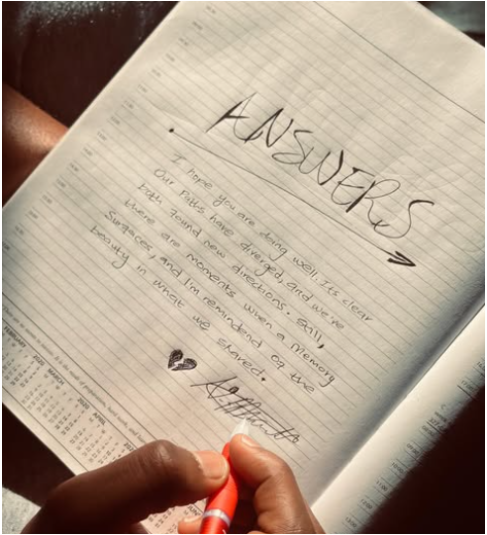 ANSWERS
I hope you are doing well. Its clear
Our Paths have diverged, and we're
both found new directions. Still,
there are moments when a memory
Surfaces, and I'm remindend of the
beauty in what we shared.
FEBRUARY
MARCH